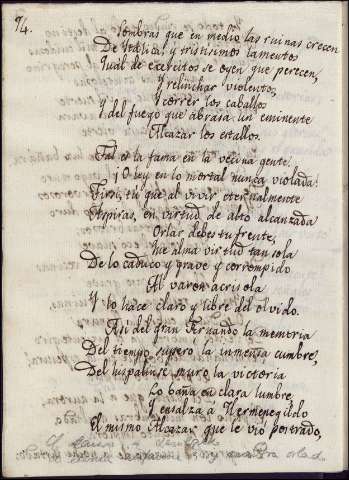 74.
Sombras que en medio las ruinas crecen
De Italica! y tristisimos lamentos
Qual de exercitos se oyen que perecen,
Y relinchar violentos,
Y correr los caballos
Y del fuego que abrasa un eminente
Alcazar los estallos.
Tal es la fama en la vecina gente.
¡O ley en lo mortal nunca violada!
Tirsi, tu que al vivir eternalmente
Aspiras, en virtud de alto alcanzada
Orlar debes tu frente,
Que alma virtud tan sola
De lo caduco y grave y corrompido
Al varon acrisola
Y lo hace claro y libre del olvido.
Asi del gran Fernando la memoria
Del tiempo supero la inmensa cumbre,
Del hispalense muro la victoria
Lo baña en clara lumbre,
Y ensalza a Hermenegildo
El mismo Alcazar que le vio postrado,